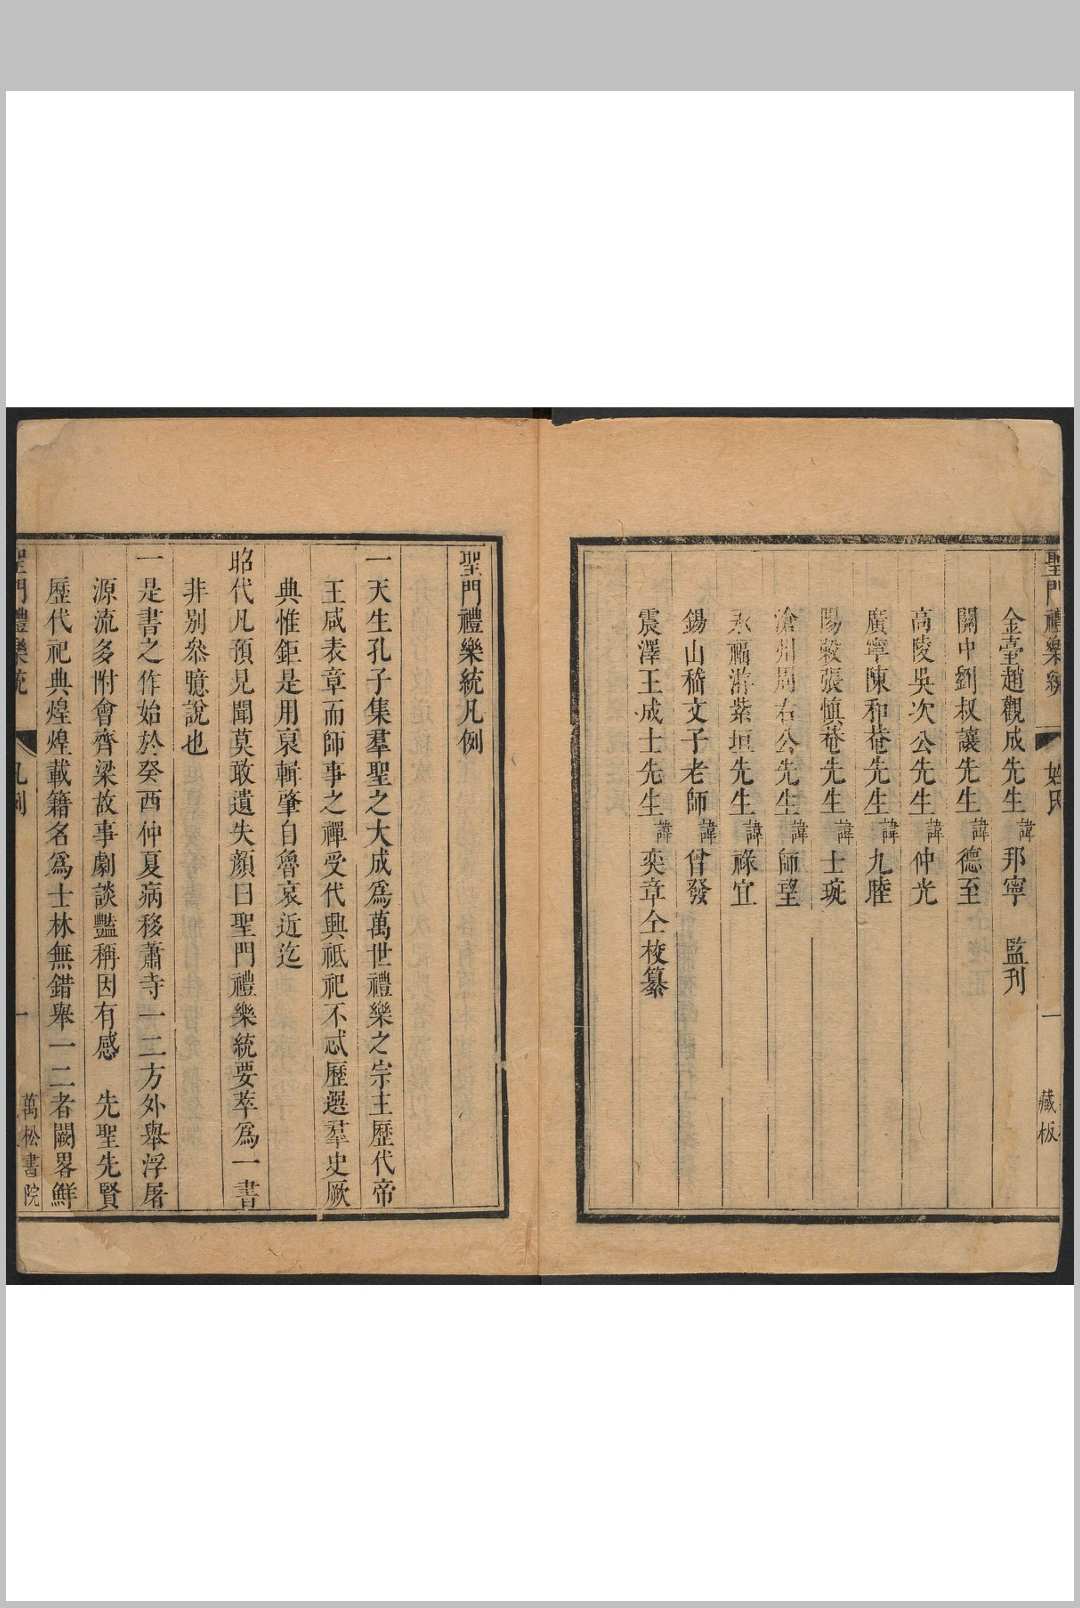 聖門禮樂統
姓氏
一
藏板
金臺趙觀成先生諱邦寧 監刋
關中劉叔讓先生諱德至
高陵吳次公先生諱仲光
廣寧陳和菴先生諱九睦
陽穀張愼菴先生諱士琬
滄州周右公先生諱師望
永福游紫垣先生諱祿宜
錫山嵇文子老師諱曾發
震澤王成士先生諱奕章仝校纂
聖門禮樂統凡例
一天生孔子集羣聖之大成爲萬世禮樂之宗主歷代帝
王咸表章而師事之禪受代興祗祀不忒歷選羣史厥
典惟鉅是用裒輯肇自魯哀近迄
昭代凡預見聞莫敢遺失顏曰聖門禮樂統要萃爲一書
非别叅臆說也
一是書之作始於癸酉仲夏病移蕭寺一二方外舉浮屠
源流多附會齊梁故事劇談豔稱因有感 先聖先賢
歷代祀典煌煌載籍名爲士林無錯舉一二者闕畧鮮
聖門禮樂統
凡例
一
萬松書院